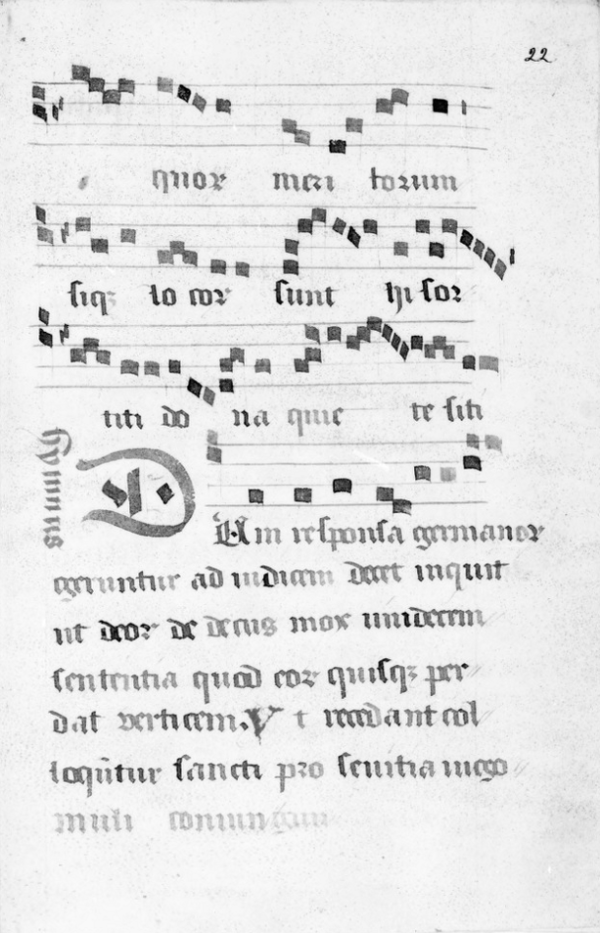 22
quor meri torum
siqz lo cor sunt hi sor
titi do na quie te siti
Hymnus
DUm responsa germanor
geruntur ad iudicem decet inquit
ut deor de decus mox unidecem
sententia quod eor quisqz per
dat verticem. V t recedant col
loqūtur sancti pro seuitia nego